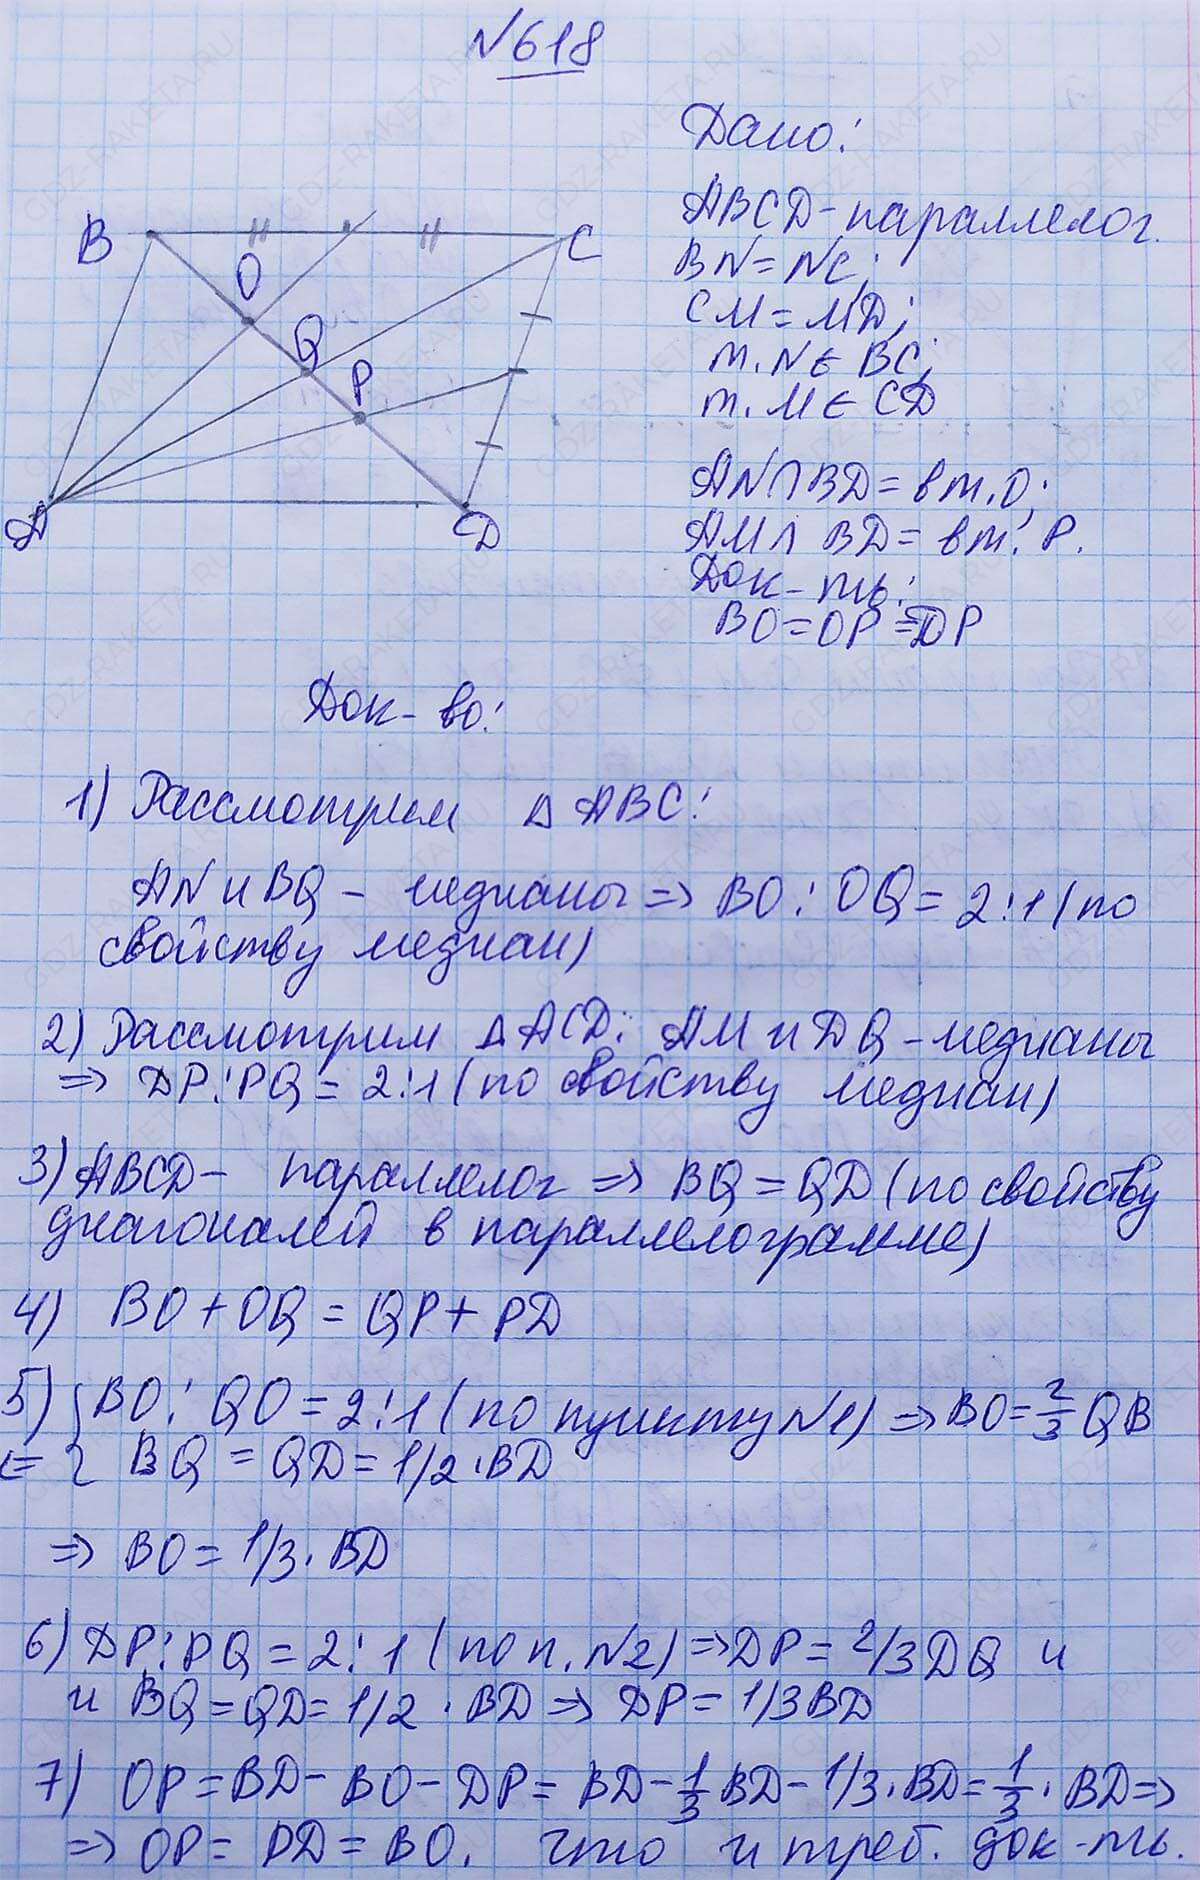 №618
Дано:
ABCD-параллелог.
BN=NC;
CM=MD;
т.N∈BC;
т.M∈CD
AN∩BD=вт.O;
AM∩BD=вт.P.
Док-ть:
BO=OP=DP
B
C
O
Q
P
A
D
Док-во:
1) Рассмотрим △ABC:
AN и BQ - медианы => BO:OQ=2:1 (по
свойству медиан)
2) Рассмотрим △ACD: AM и DQ-медианы
=> DP:PQ=2:1 (по свойству медиан)
3) ABCD- параллелог => BQ=QD (по свойству
диагоналей в параллелограмме)
4) BO+OQ=QP+PD
5) { BO:QO=2:1 (по пункту N1) => BO=2/3 QB
<= { BQ=QD=1/2·BD
=> BO=1/3·BD
6) DP:PQ=2:1 (по п.N2) => DP=2/3DQ и
и BQ=QD=1/2·BD => DP=1/3BD
7) OP=BD-BO-DP=BD-1/3BD-1/3·BD=1/3·BD=>
=> OP=PD=BO. что и треб. док-ть.
GDZ-RAKETA.RU